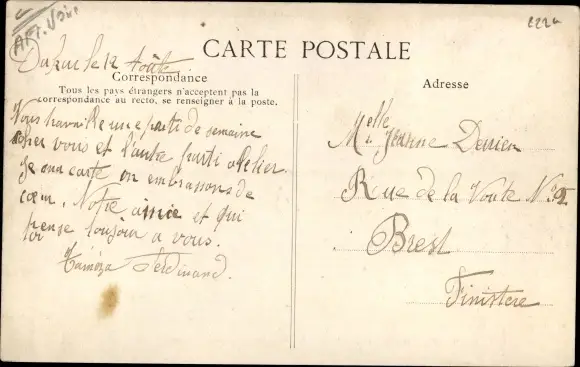 Afr. Noire
222a
CARTE POSTALE
Dakar le 12 Août
Correspondance
Tous les pays étrangers n'acceptent pas la
correspondance au recto, se renseigner à la poste.
Adresse
Vous travaille une parti de semaine
cher vous et l'autre parti atelier.
Je ma carte on embrassons de
cœur. Notre amie et qui
pense toujour a vous.
Ferdinand.
Melle Jeanne Derrien
Rue de la Voute No
Brest
Finistere